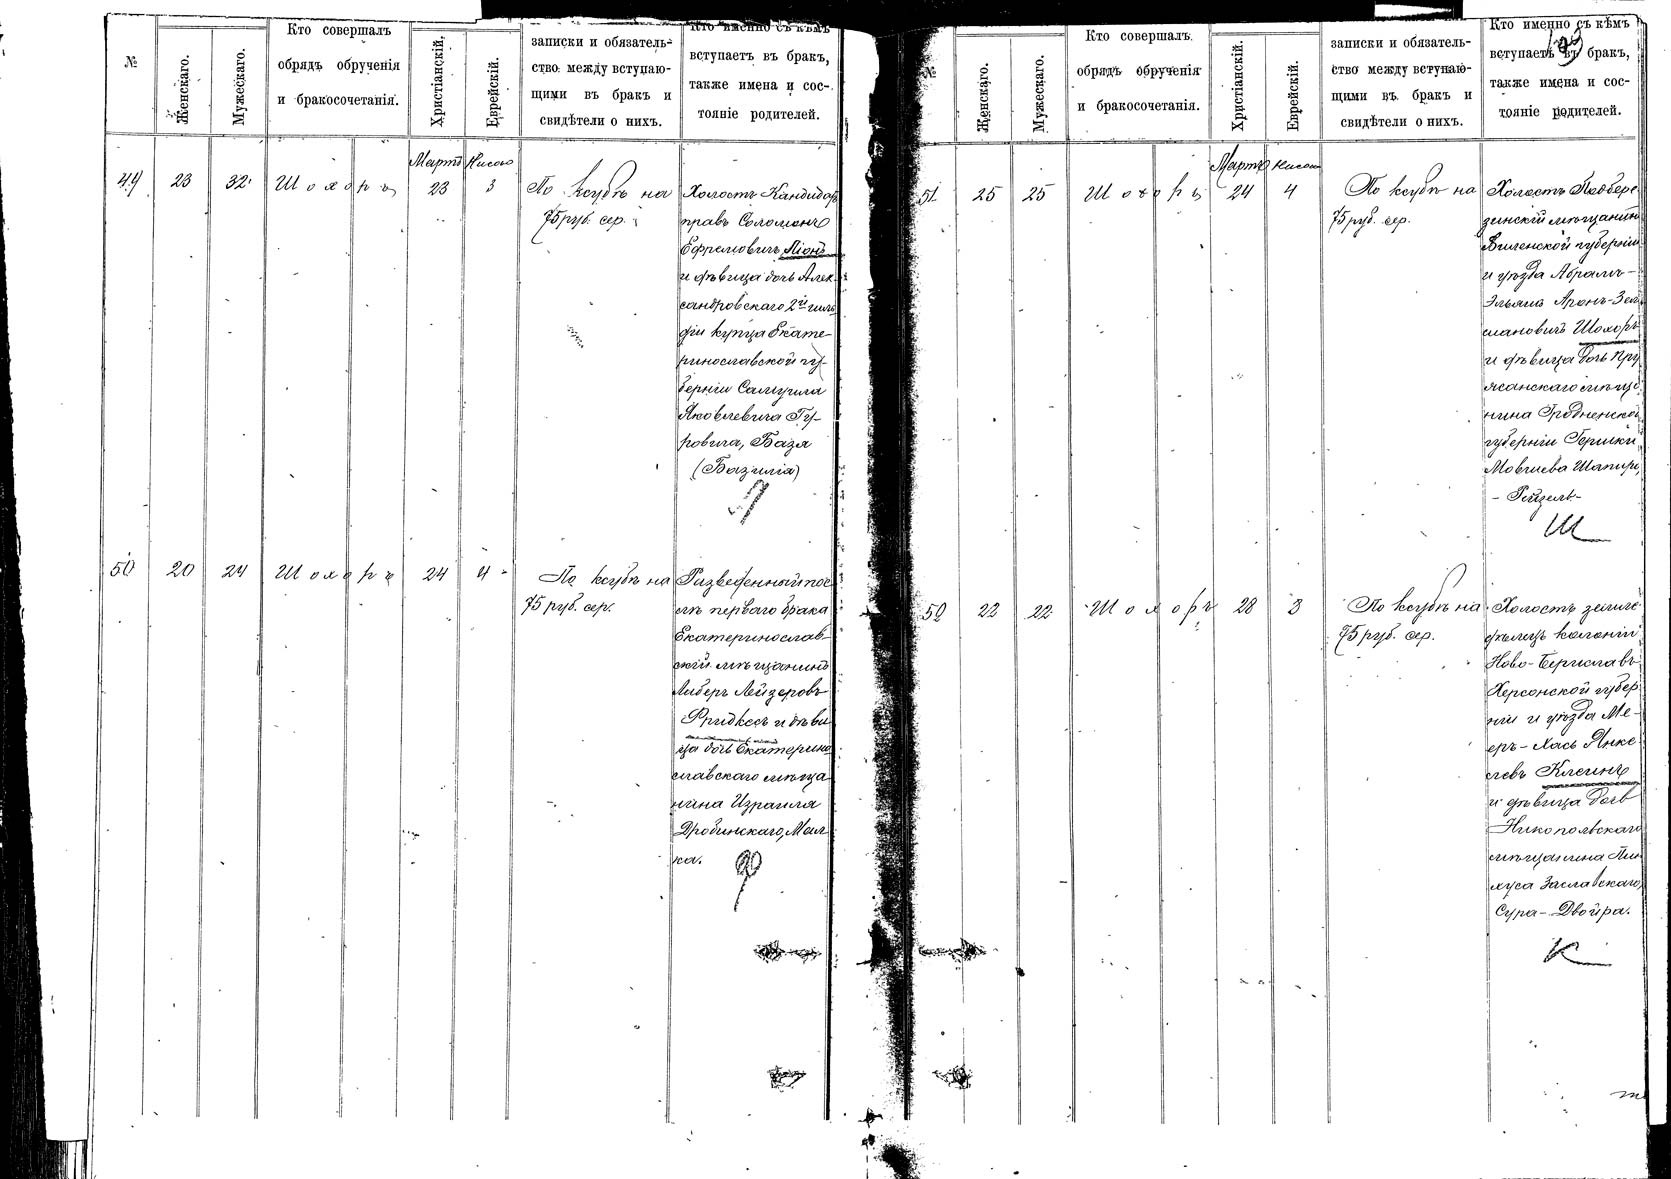 №
Женскаго.
Мужескаго.
Кто совершалъ
обрядъ обрученія
и бракосочетанія.
Христіанскій.
Еврейскій.
записки и обязатель-
ство между вступаю-
щими въ бракъ и
свидѣтели о нихъ.
Кто именно съ кѣмъ
вступаетъ въ бракъ,
также имена и сос-
тояніе родителей.
Мартъ Нисонъ
49 23 32 Шохоръ 23 3
По ксубѣ на
75 руб. сер.
Холостъ Кандидатъ
правъ Соломонъ
Ефремовичъ Піонъ
и дѣвица дочь Алек
сандровскаго 2й гиль
діи купца Екате-
ринославской гу-
берніи Самуила
Яковлевича Гу-
ровича, Базя
(Базилія)
50 20 24 Шохоръ 24 4
По ксубѣ на
75 руб. сер.
Разведенный пос
лѣ перваго брака
Екатеринослав-
скій мѣщанинъ
Либеръ Лейзеровъ
Фридкесъ и дѣви
ца дочь Екатерино
славскаго мѣща
нина Израиля
Дробинскаго, Мал
ка.
№
Женскаго.
Мужескаго.
Кто совершалъ
обрядъ обрученія
и бракосочетанія.
Христіанскій.
Еврейскій.
записки и обязатель-
ство между вступаю-
щими въ бракъ и
свидѣтели о нихъ.
Кто именно съ кѣмъ
вступаетъ въ бракъ,
также имена и сос-
тояніе родителей.
Мартъ Нисонъ
51 25 25 Шохоръ 24 4
По ксубѣ на
75 руб. сер.
Холостъ Подбере
зинскій мѣщанинъ
Виленской губерніи
и уѣзда Абрамъ-
Эльяшъ Аронъ-Зел
мановичъ Шохоръ
и дѣвица дочь Пру
жанскаго мѣща
нина Гродненской
губерніи Гершки
Мовшева Шапиры,
- Рейзель-
Ш
52 22 22 Шохоръ 28 8
По ксубѣ на
75 руб. сер.
Холостъ земле
дѣлецъ колоніи
Ново-Бериславъ
Херсонской губер
ніи и уѣзда Ме-
еръ-Хась Янке
левъ Клеинъ
и дѣвица дочь
Никопольскаго
мѣщанина Пин
хуса Заславскаго,
Сура-Двойра.
К